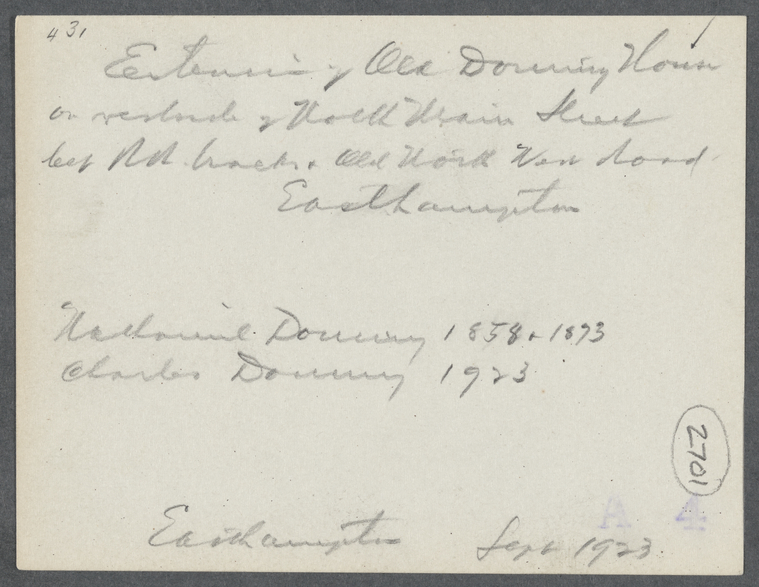 431
Exterior of Old Dominy House
on west side of North Main Street
bet R R tracks & Old North West Road
Easthampton
Nathaniel Dominy 1858 & 1873
Charles Dominy 1923
2701
Easthampton Sept 1923
A 4